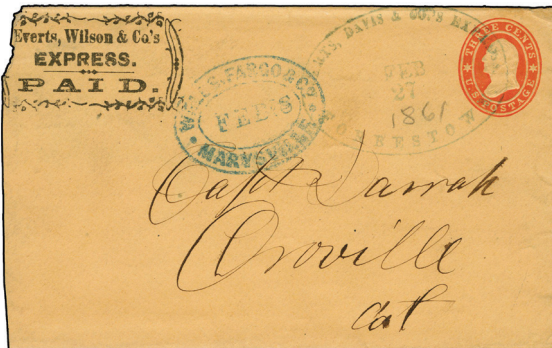 Everts, Wilson & Co's
EXPRESS.
PAID.
WELLS, FARGO & CO.
FEB 5
MARYSVILLE
DAVIS & CO.'S
FEB
27
1861
THREE CENTS
U.S. POSTAGE
Capt Darrah
Oroville
Cal